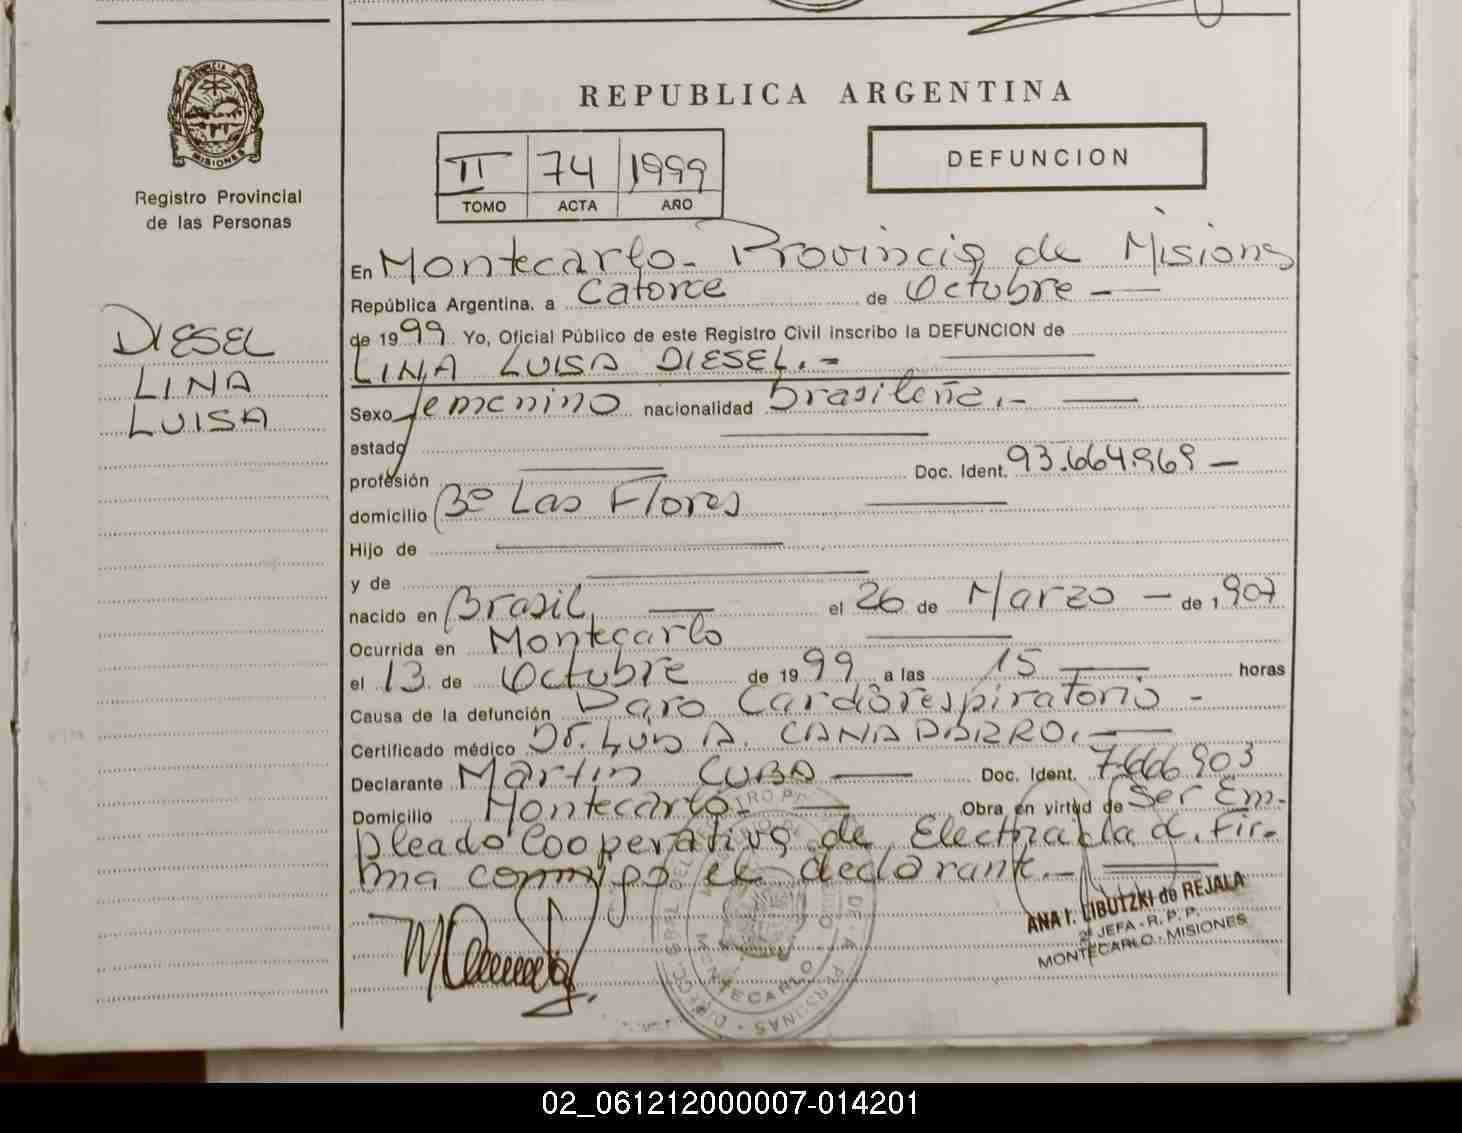 REPUBLICA ARGENTINA
DEFUNCION
II 74 1999
TOMO ACTA AÑO
MISIONES
Registro Provincial
de las Personas
DIESEL
LINA
LUISA
En Montecarlo - Provincia de Misiones
República Argentina, a Catorce de Octubre -
de 1999 Yo, Oficial Público de este Registro Civil inscribo la DEFUNCION de
LINA LUISA DIESEL.-
Sexo femenino nacionalidad brasileña.-
estado
profesión Doc. Ident. 93.664.969 -
domicilio Bº Las Flores
Hijo de
y de
nacido en Brasil el 26 de Marzo - de 1.907
Ocurrida en Montecarlo
el 13 de Octubre de 1999 a las 15 horas
Causa de la defunción Paro Cardiorespiratorio -
Certificado médico Dr. Luis A. CANABARRO.-
Declarante Martin CUBA Doc. Ident. 7.666.903
Domicilio Montecarlo.- Obra en virtud de Ser Em-
pleado Cooperativa de Electricidad. Fir-
ma conmigo el declarante.-
ANA I. LIBUTZKI de REJALA
2ª JEFA - R. P. P.
MONTECARLO - MISIONES
02_061212000007-014201